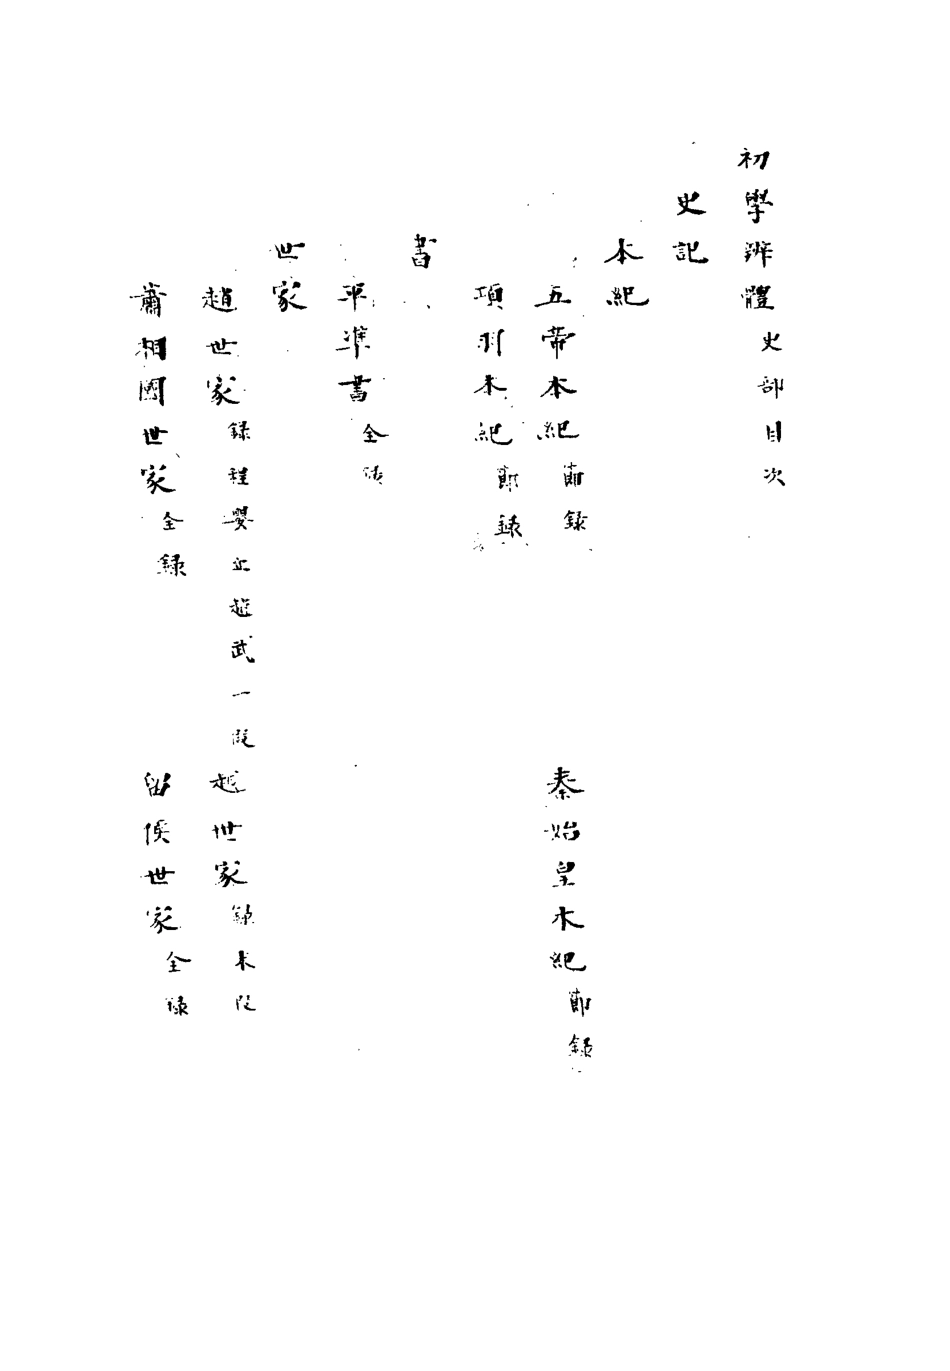 初學辨體史部目次
史記
本紀
五帝本紀節錄 秦始皇本紀節錄
項羽本紀節錄
書
平準書全
世家
趙世家錄程嬰立趙武一段 越世家錄末段
蕭相國世家全錄 留侯世家全錄